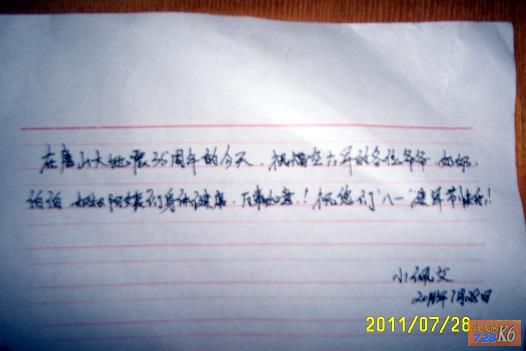 在唐山大地震35周年的今天,祝福空六军的各位爷爷 奶奶,
伯伯 阿姨们身体健康,万事如意!祝您们"八一"建军节快乐!
小佩文
2011年7月28日
2011/07/28
战友网
728K6